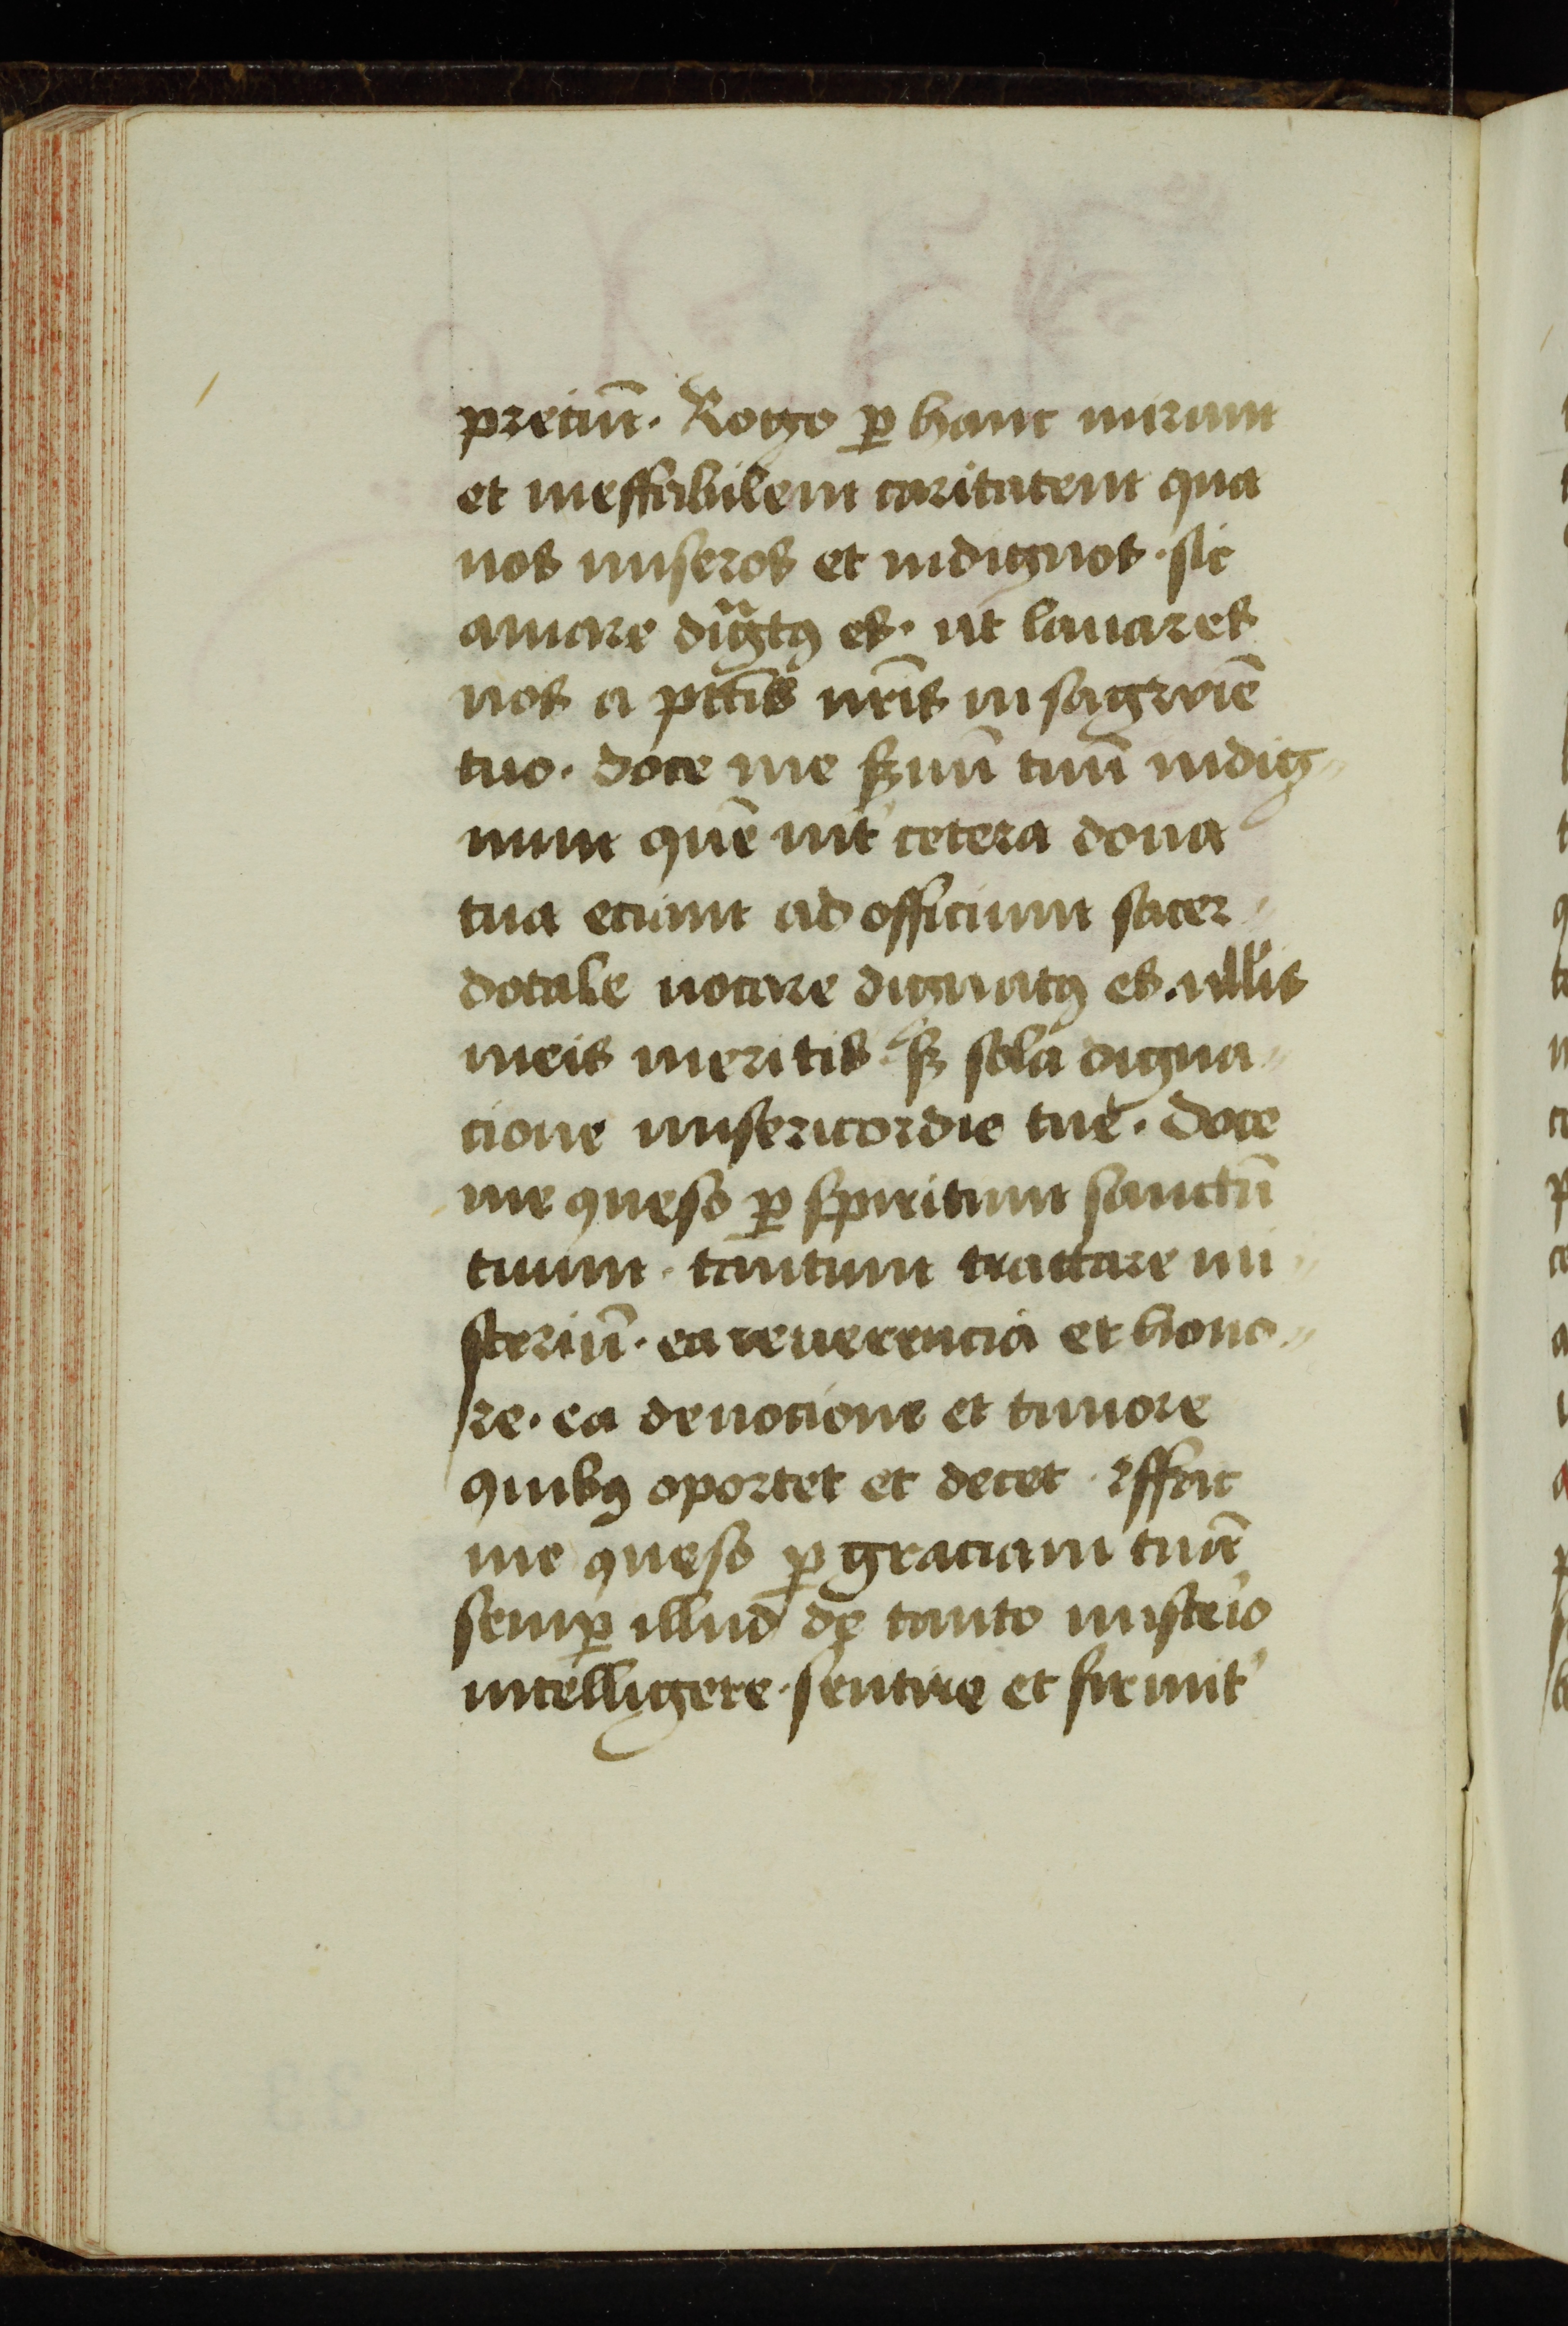 preciū. Rogo ꝑ hanc miram
et ineffabilem caritatem qua
nos miseros et indignos. sic
amare digͣtꝰ es. ut lauares
nos a pctīs nr̄is in sagwiē
tuo. doce me ẜuū tuū indig-
num quē int' cetera dona
tua eciam ad officium sacer-
dotale uocare dignatꝰ es. nullis
meis meritis. sꝫ sola digna-
cione misericordie tue. doce
me queso ꝑ spiritum sanctū
tuum. tantum tractare mi-
steriū. ea reuerencia et hono-
re. ea deuocione et timore
quibꝰ oportet et decet. effac
me queso ꝑ graciam tuā
semꝑ illud de tanto misterio
intelligere. sentire et firmit'